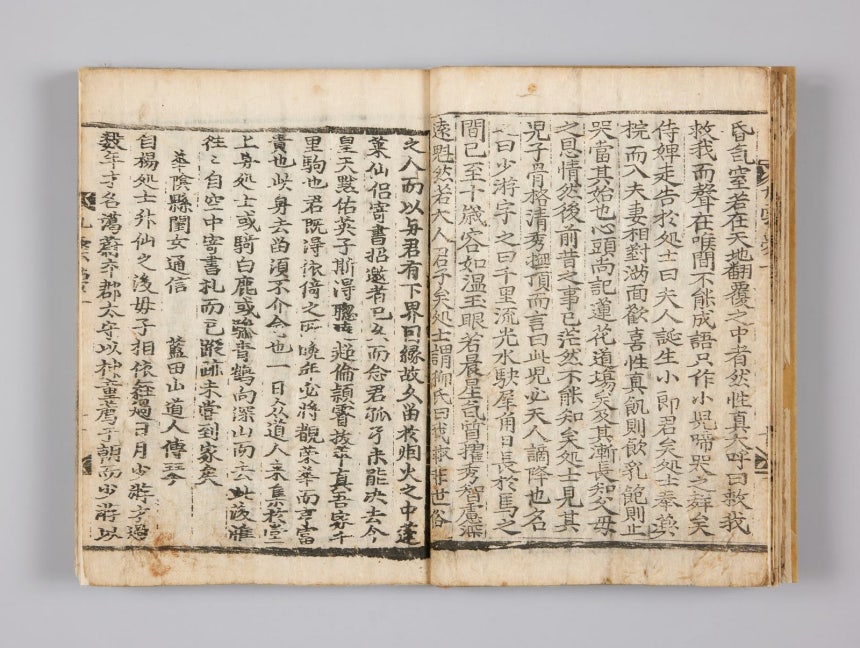 昏氣窒若在天地翻覆之中者然性真大呼曰救我
救我而聲在喉間不能成語只作小兒啼哭之聲矣
侍婢走告於処士曰夫人誕生小郎君矣処士奉藥
椀而入夫妻相對滿面歡喜性真飢則飮乳飽則止
哭當其始也心頭尚記蓮花道場矣及其漸長知父母
之恩情然後前昔之事已茫然不能知矣処士見其
児子骨格清秀撫頂而言曰此児必天人謫降也名
曰少游字之曰千里流光水駛犀角日長於焉之
間已至十歲容如溫玉眼若晨星氣質擢秀智慮深
遠魁然若大人君子矣処士謂柳氏曰我本非世俗
之人而以与君有下界因緣故久留於烟火之中蓬
萊仙侶寄書招邀者已久而念君孤孑未能决去今
皇天默佑英子斯得聰達超倫頴睿拔萃真吾家千
里駒也君既得依倚之所晚年必將覩榮華而享富
貴也此身去留須不介念也一日众道人来集於堂
上与処士或騎白鹿或驂青鶴向深山而去此後惟
往々自空中寄書札而已蹤跡未嘗到家矣
華陰縣閨女通信 藍田山道人傳琴
自楊処士升仙之後母子相依經過日月少游才過
數年才名藹蔚本郡太守以神童薦于朝而少游以